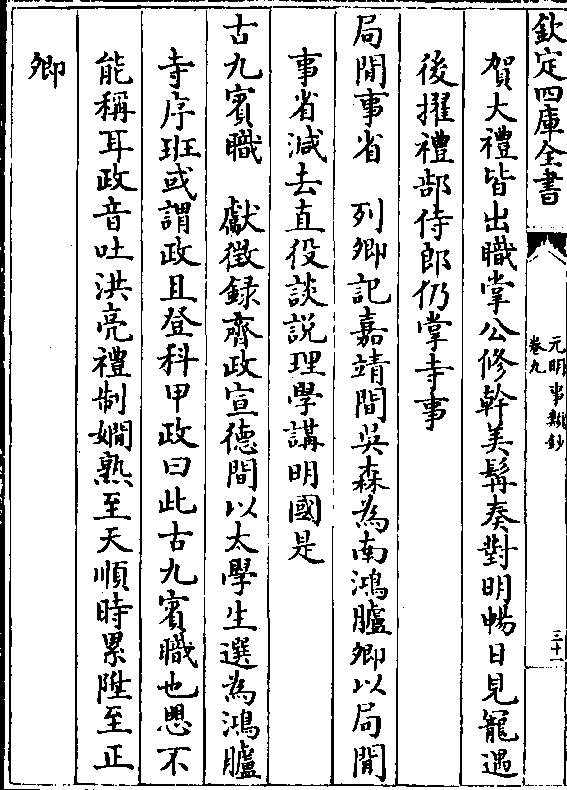 欽定四庫全書
元明事類鈔
卷九
三十一
賀大禮皆出職掌公修幹美髯奏對明暢日見寵遇
後擢禮部侍郎仍掌寺事
局閒事省　列卿記嘉靖間吳森為南鴻臚卿以局閒
事省減去直役談說理學講明國是
古九賓職　獻徵録齊政宣德間以太學生選為鴻臚
寺序班或謂政且登科甲政曰此古九賓職也思不
能稱耳政音吐洪亮禮制嫺熟至天順時累陞至正
卿